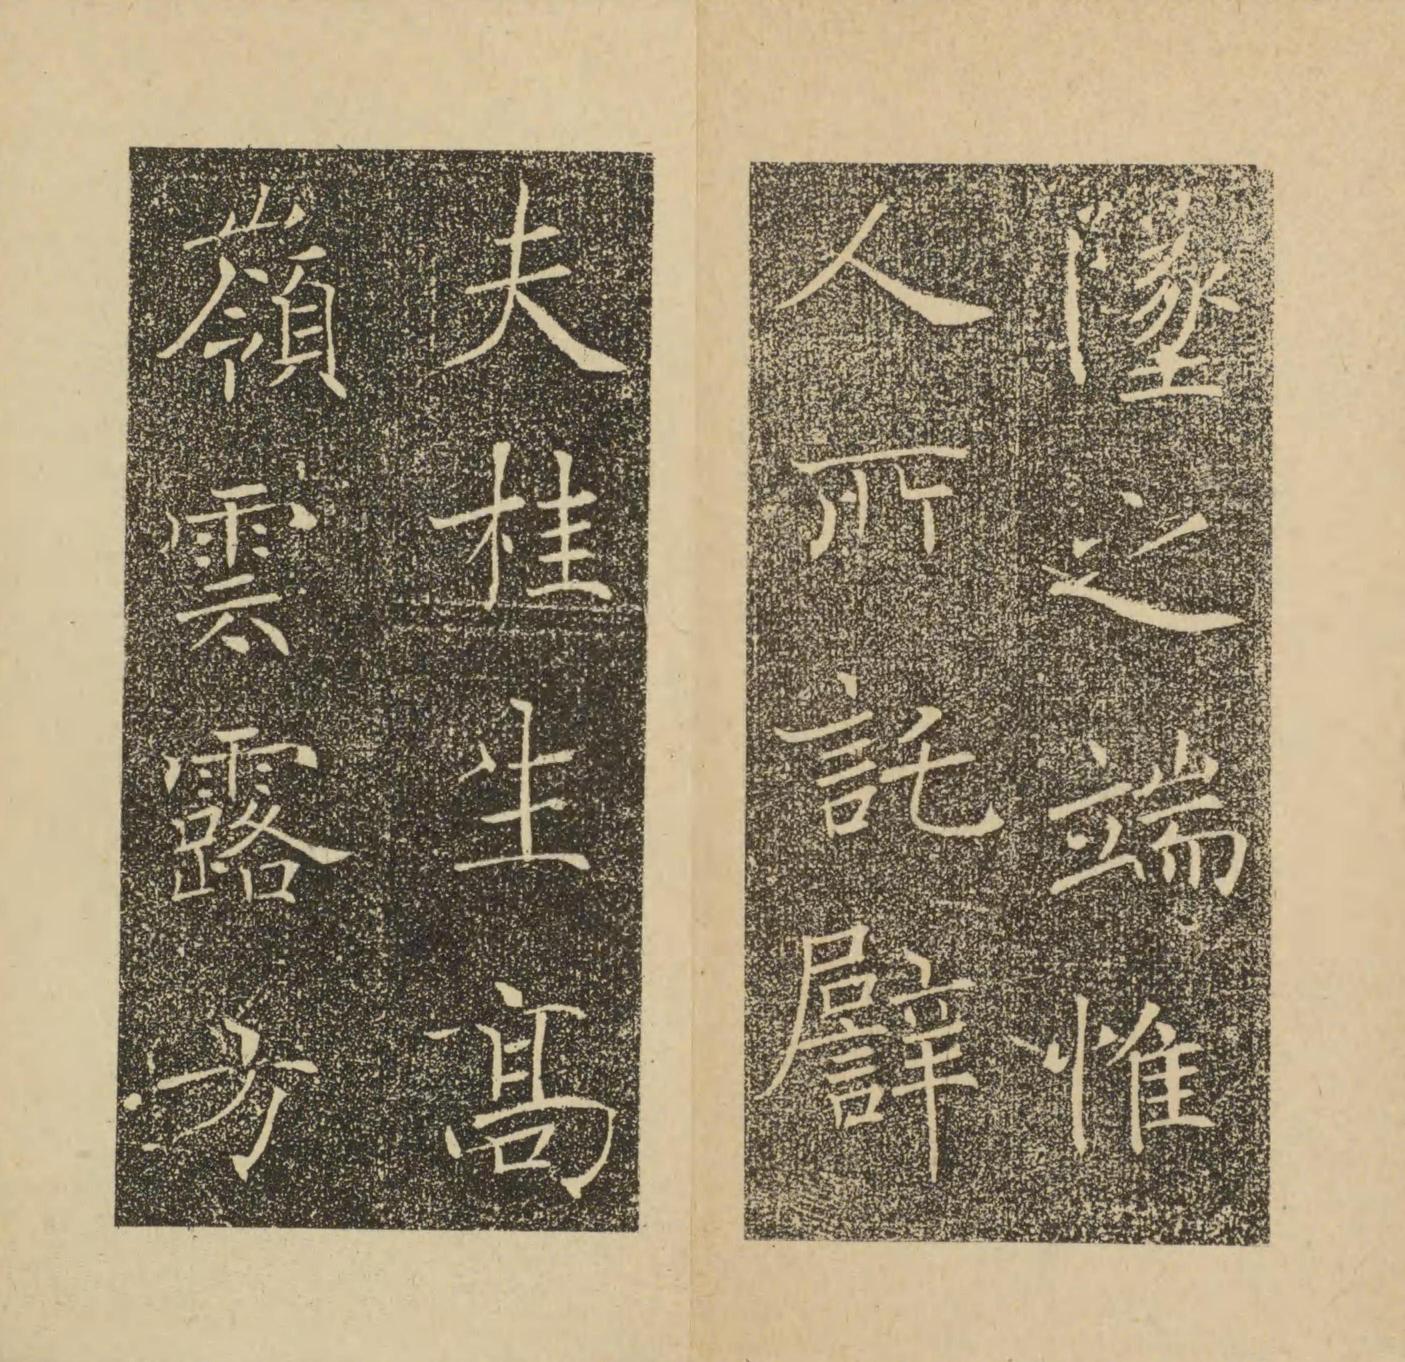 墜之端惟
人所託譬
夫桂生高
嶺雲露方